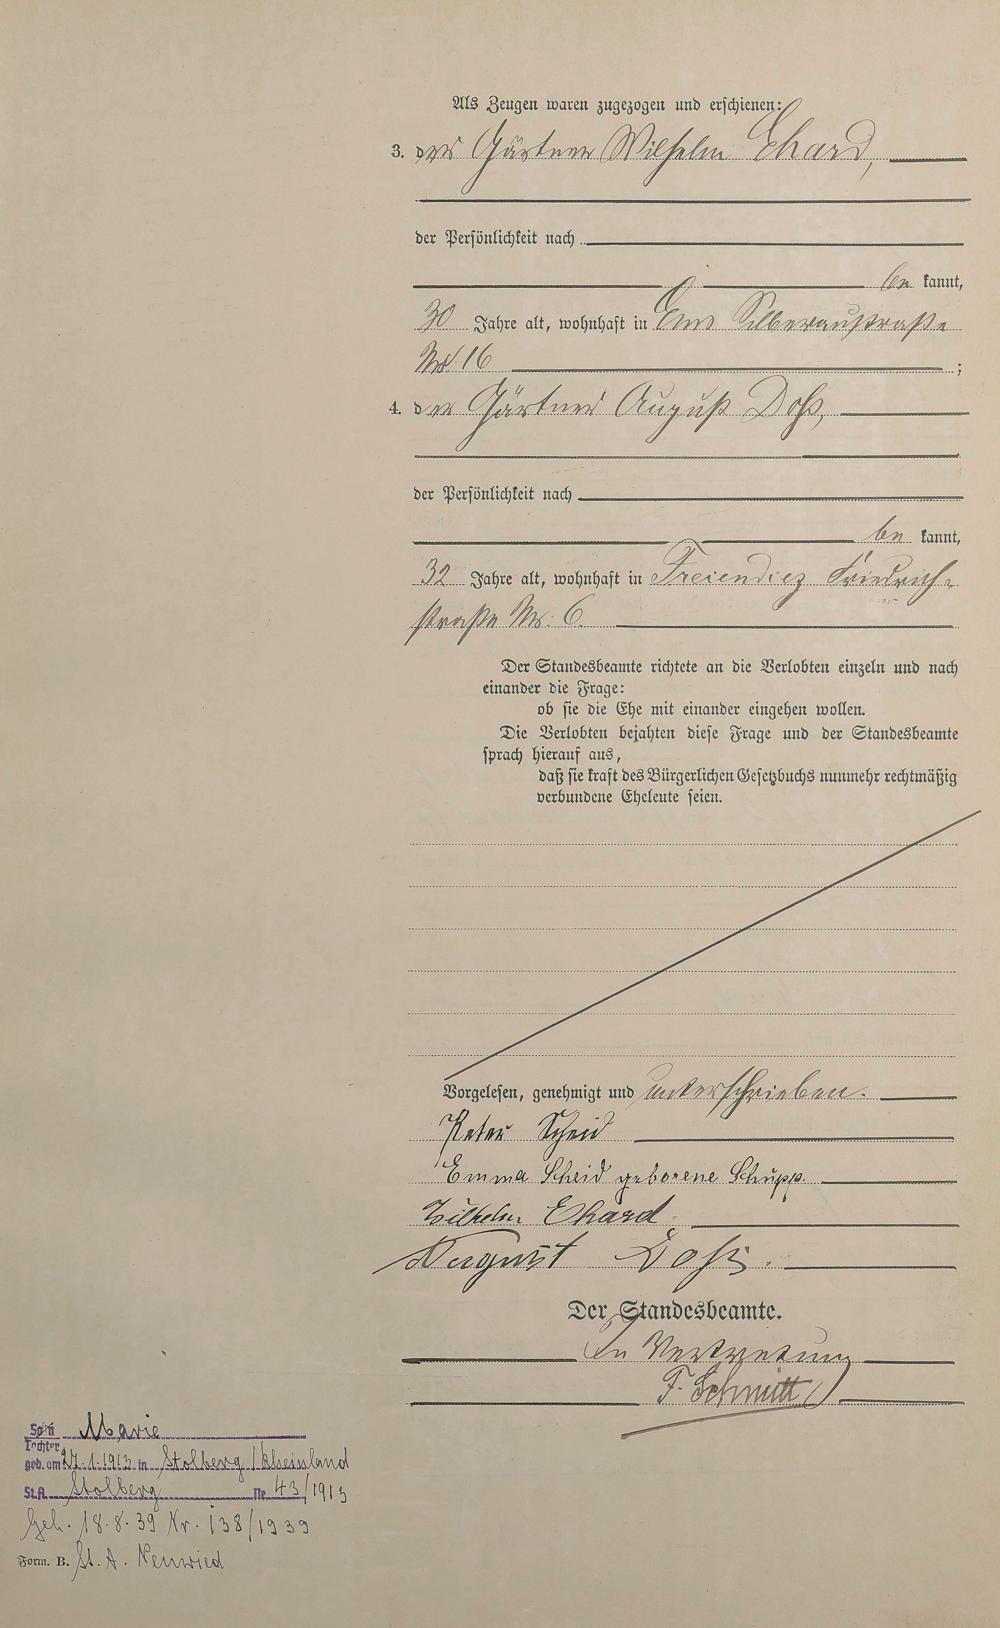 Als Zeugen waren zugezogen und erschienen:
3. der Gärtner Wilhelm Ehard,
der Persönlichkeit nach
be kannt,
30 Jahre alt, wohnhaft in Ems Silberaustraße
Nr. 16 ;
4. der Gärtner August Doß,
der Persönlichkeit nach
be kannt,
32 Jahre alt, wohnhaft in Freiendiez Friedrich-
straße Nr. 6.
Der Standesbeamte richtete an die Verlobten einzeln und nach
einander die Frage:
ob sie die Ehe mit einander eingehen wollen.
Die Verlobten bejahten diese Frage und der Standesbeamte
sprach hierauf aus,
daß sie kraft des Bürgerlichen Gesetzbuchs nunmehr rechtmäßig
verbundene Eheleute seien.
Vorgelesen, genehmigt und unterschrieben.
Peter Scheid
Emma Scheid geborene Schupp.
Wilhelm Ehard.
August Doß.
Der Standesbeamte.
In Vertretung
F. Schmitt
Sohn Marie
Tochter
geb. am 1.1913 in Stolberg/Rheinland
St.A. Stolberg Nr. 43/1913
Geh. 18.8.39 Nr. 138/1939
Form. B. St. A. Neuwied